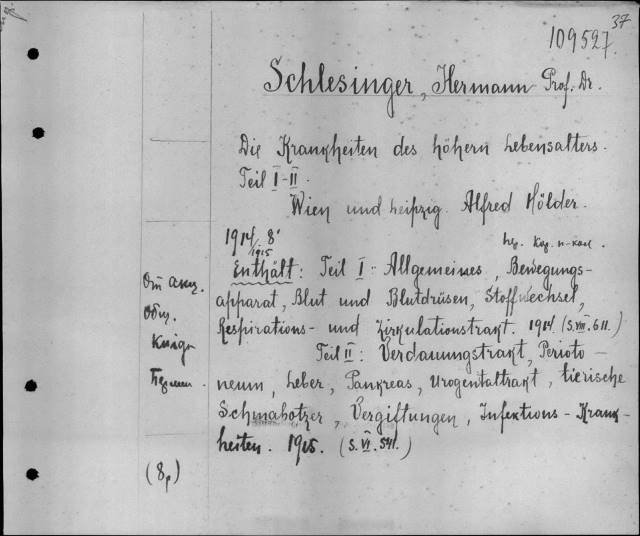 37
109527.
Schlesinger, Hermann Prof. Dr.
Die Krankheiten des höhern Lebensalters.
Teil I-II.
Wien und Leipzig. Alfred Hölder.
1914/1915 8°
Enthält: Teil I: Allgemeines, Bewegungs-
apparat, Blut und Blutdrüsen, Stoffwechsel,
Respirations- und Zirkulationstrakt. 1914 (S. VIII. 611.)
Teil II: Verdauungstrakt, Perioto-
neum, Leber, Pankreas, Urogentaltrakt, tierische
Schmahotzer, Vergiftungen, Infektions-Krank-
heiten. 1915. (S. VI. 541.)
От акц.
Общ.
Книга
(8р)